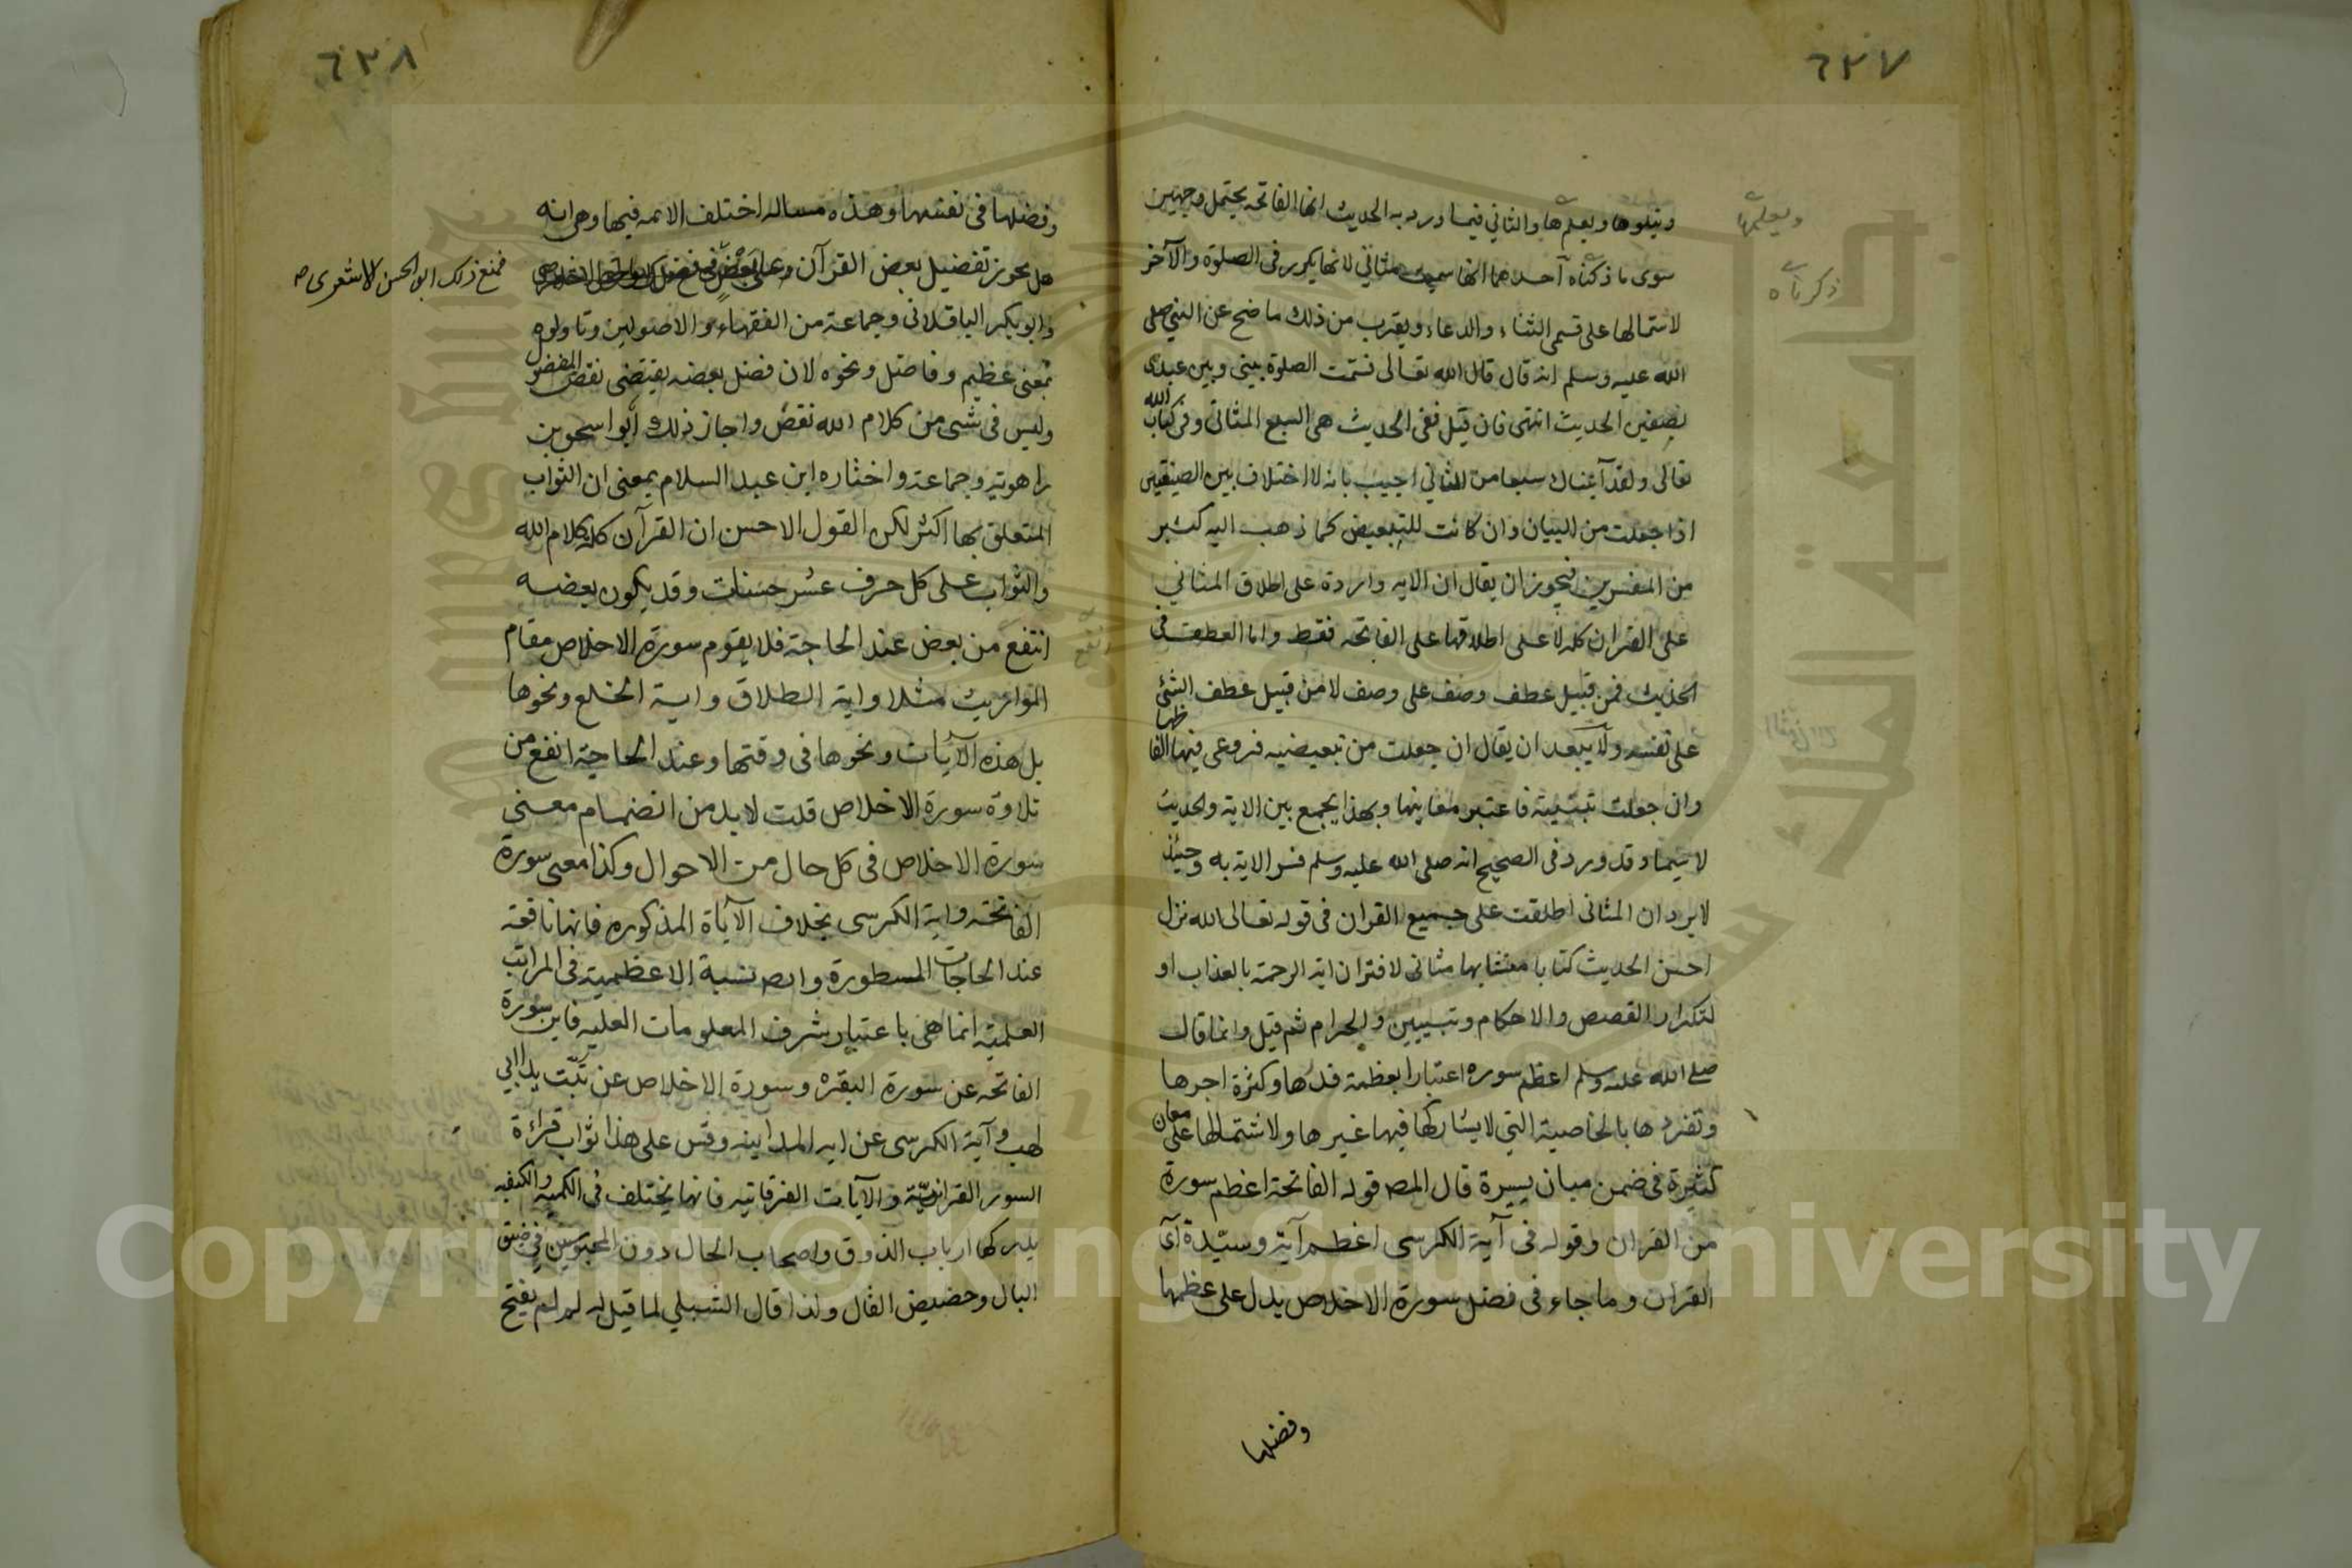 ٦٣٧
ويتلوها ويعلمها والثاني فيما ورد به الحديث انها الفاتحه يحتمل وجهين
ويعلمها
سوى ما ذكرناه احدهما انها سميت مثاني لانها يكرر فى الصلوة والآخر
ذكرناه
لاشتمالها على قسمى الثناء والدعاء ويقرب من ذلك ما صح عن النبي صلى
الله عليه وسلم انه قال قال الله تعالى قسمت الصلوة بينى وبين عبدى
نصفين الحديث انتهى فان قيل ففى الحديث هى السبع المثانى وفى كتاب الله
تعالى ولقد آتيناك سبعا من المثاني اجيب بانه لا اختلاف بين الصيغتين
اذا جعلت من للبيان وان كانت للتبعيض كما ذهب اليه كثير
من المفسرين فيجوز ان يقال ان الايه واردة على اطلاق المثاني
على القران كله لا على اطلاقها على الفاتحه فقط واما العطف فى
الحديث فمن قبيل عطف وصف على وصف لا من قبيل عطف الشئ
على نفسه ولا يبعد ان يقال ان جعلت من تبعيضيه فروعى فيها الفاظها
وان جعلت تبيينية فاعتبر معاينها وبهذا يجمع بين الاية والحديث
لا سيما وقد ورد فى الصحيح انه صلى الله عليه وسلم فسر الاية به وحينئذ
لا يرد ان المثانى اطلقت على جميع القران فى قوله تعالى الله نزل
احسن الحديث كتابا متشابها مثانى لاقتران اية الرحمة بالعذاب او
لتكرار القصص والاحكام وتبيين والحرام ثم قيل وانما قال
صلى الله عليه وسلم اعظم سوره اعتبارا بعظمة قدرها وكثرة اجرها
وتفردها بالخاصية التي لا يشاركها فيها غيرها ولاشتمالها على معان
كثيرة فى ضمن مبان يسيرة قال المص قوله الفاتحة اعظم سورة
من القران وقوله فى آية الكرسى اعظم آية وسيّدة آى
القران وما جاء فى فضل سورة الاخلاص يدل على عظمها
وفضلها
٦٣٨
وفضلها فى نفسها وهذه مساله اختلف الائمه فيها وهى انه
هل يجوز تفضيل بعض القرآن على بعض
فمنع ذلك ابو الحسن الاشعرى صح
وابو بكر الباقلانى وجماعة من الفقهاء والاصولين وتاولوه
بمعنى عظيم وفاضل ونحوه لان فضل بعضه يقتضى نقص المفضول
وليس فى شىء من كلام الله نقص واجاز ذلك ابو اسحق بن
راهويه وجماعة واختاره ابن عبد السلام بمعنى ان الثواب
المتعلق بها اكثر لكن القول الاحسن ان القرآن كله كلام الله
والثواب على كل حرف عشر حسنات وقد يكون بعضه
انفع من بعض عند الحاجة فلا يقوم سورة الاخلاص مقام
المواريث مثلا واية الطلاق واية الخلع ونحوها
بل هذه الآيات ونحوها فى وقتها وعند الحاجة انفع من
تلاوة سورة الاخلاص قلت لا بد من انضمام معنى
سورة الاخلاص فى كل حال من الاحوال وكذا معنى سورة
الفاتحة واية الكرسى بخلاف الآياة المذكوره فانها نافعة
عند الحاجات المسطورة نسبة الاعظمية فى المراتب
العلمية انما هى باعتبار شرف المعلومات العليه فاين سورة
الفاتحه عن سورة البقره وسورة الاخلاص عن تبّت يدا ابي
لهب وآية الكرسى عن ايه المداينه وقس على هذا ثواب قراءة
السور القرانيّة والآيات الفرقانيه فانها يختلف فى الكميه والكيفيه
يدركها ارباب الذوق واصحاب الحال دون المحبوسين فى ضيق
البال وحضيض القال ولذا قال الشبلي لما قيل له لم لم يفتح
جامعة الملك سعود
King Saud University
1957
Copyright © King Saud University